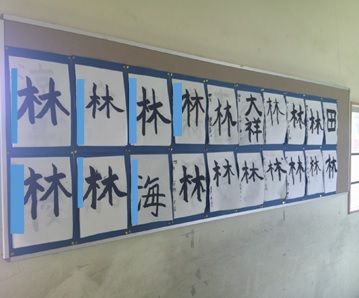 林 林 林 林 林 大祥 林 林 林 田
林 林 海 林 林 林 林 林 林 林